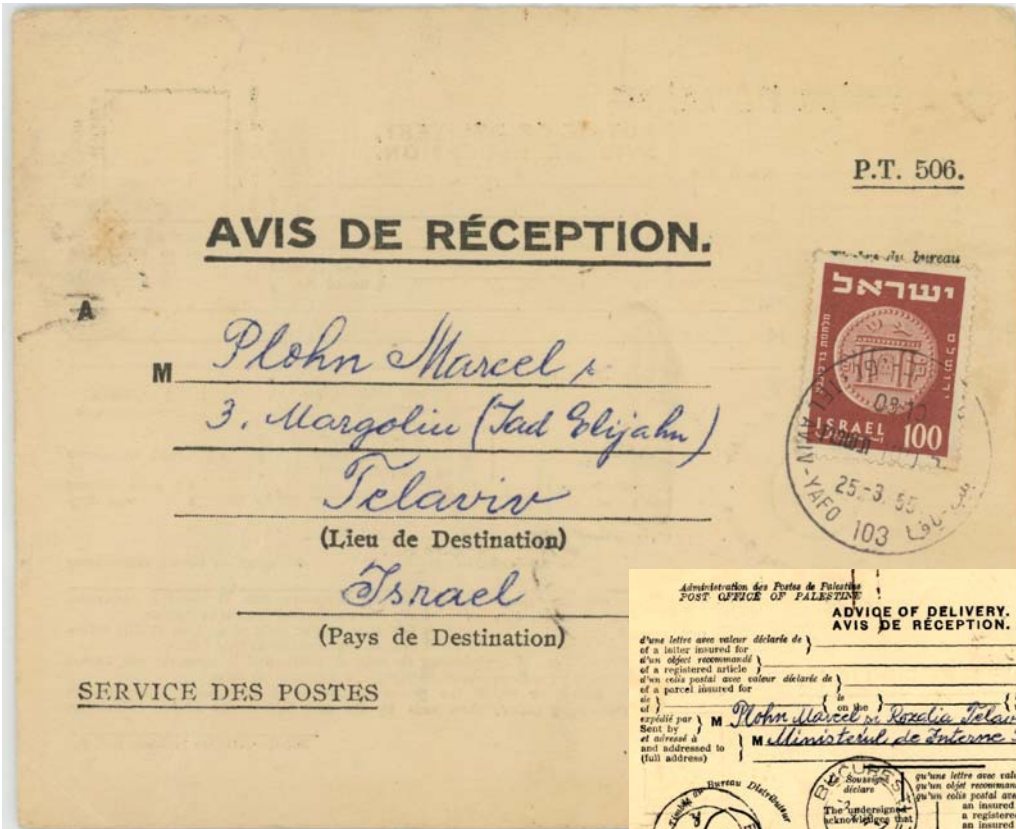 P.T. 506.
AVIS DE RÉCEPTION.
du bureau
ישראל
ISRAEL 100
TEL AVIV-YAFO 103
25.-3. 55
A
M Plohn Marcel
3. Margolin (Jad Elijahu)
Telaviv
(Lieu de Destination)
Israel
(Pays de Destination)
SERVICE DES POSTES
Administration des Postes de Palestine
POST OFFICE OF PALESTINE
ADVICE OF DELIVERY.
AVIS DE RÉCEPTION.
d'une lettre avec valeur déclarée de
of a letter insured for
d'un objet recommandé
of a registered article
d'un colis postal avec valeur déclarée de
of a parcel insured for
de le
of on the
expédié par M Plohn Marcel si Rozalia
Sent by
et adressé à M Ministerul de Interne
and addressed to
(full address)
BUCURES
Soussigné
déclare
The undersigned
acknowledges that
qu'une lettre avec
qu'un objet
qu'un colis postal
an insured
a registered
an insured
Bureau Distributeur